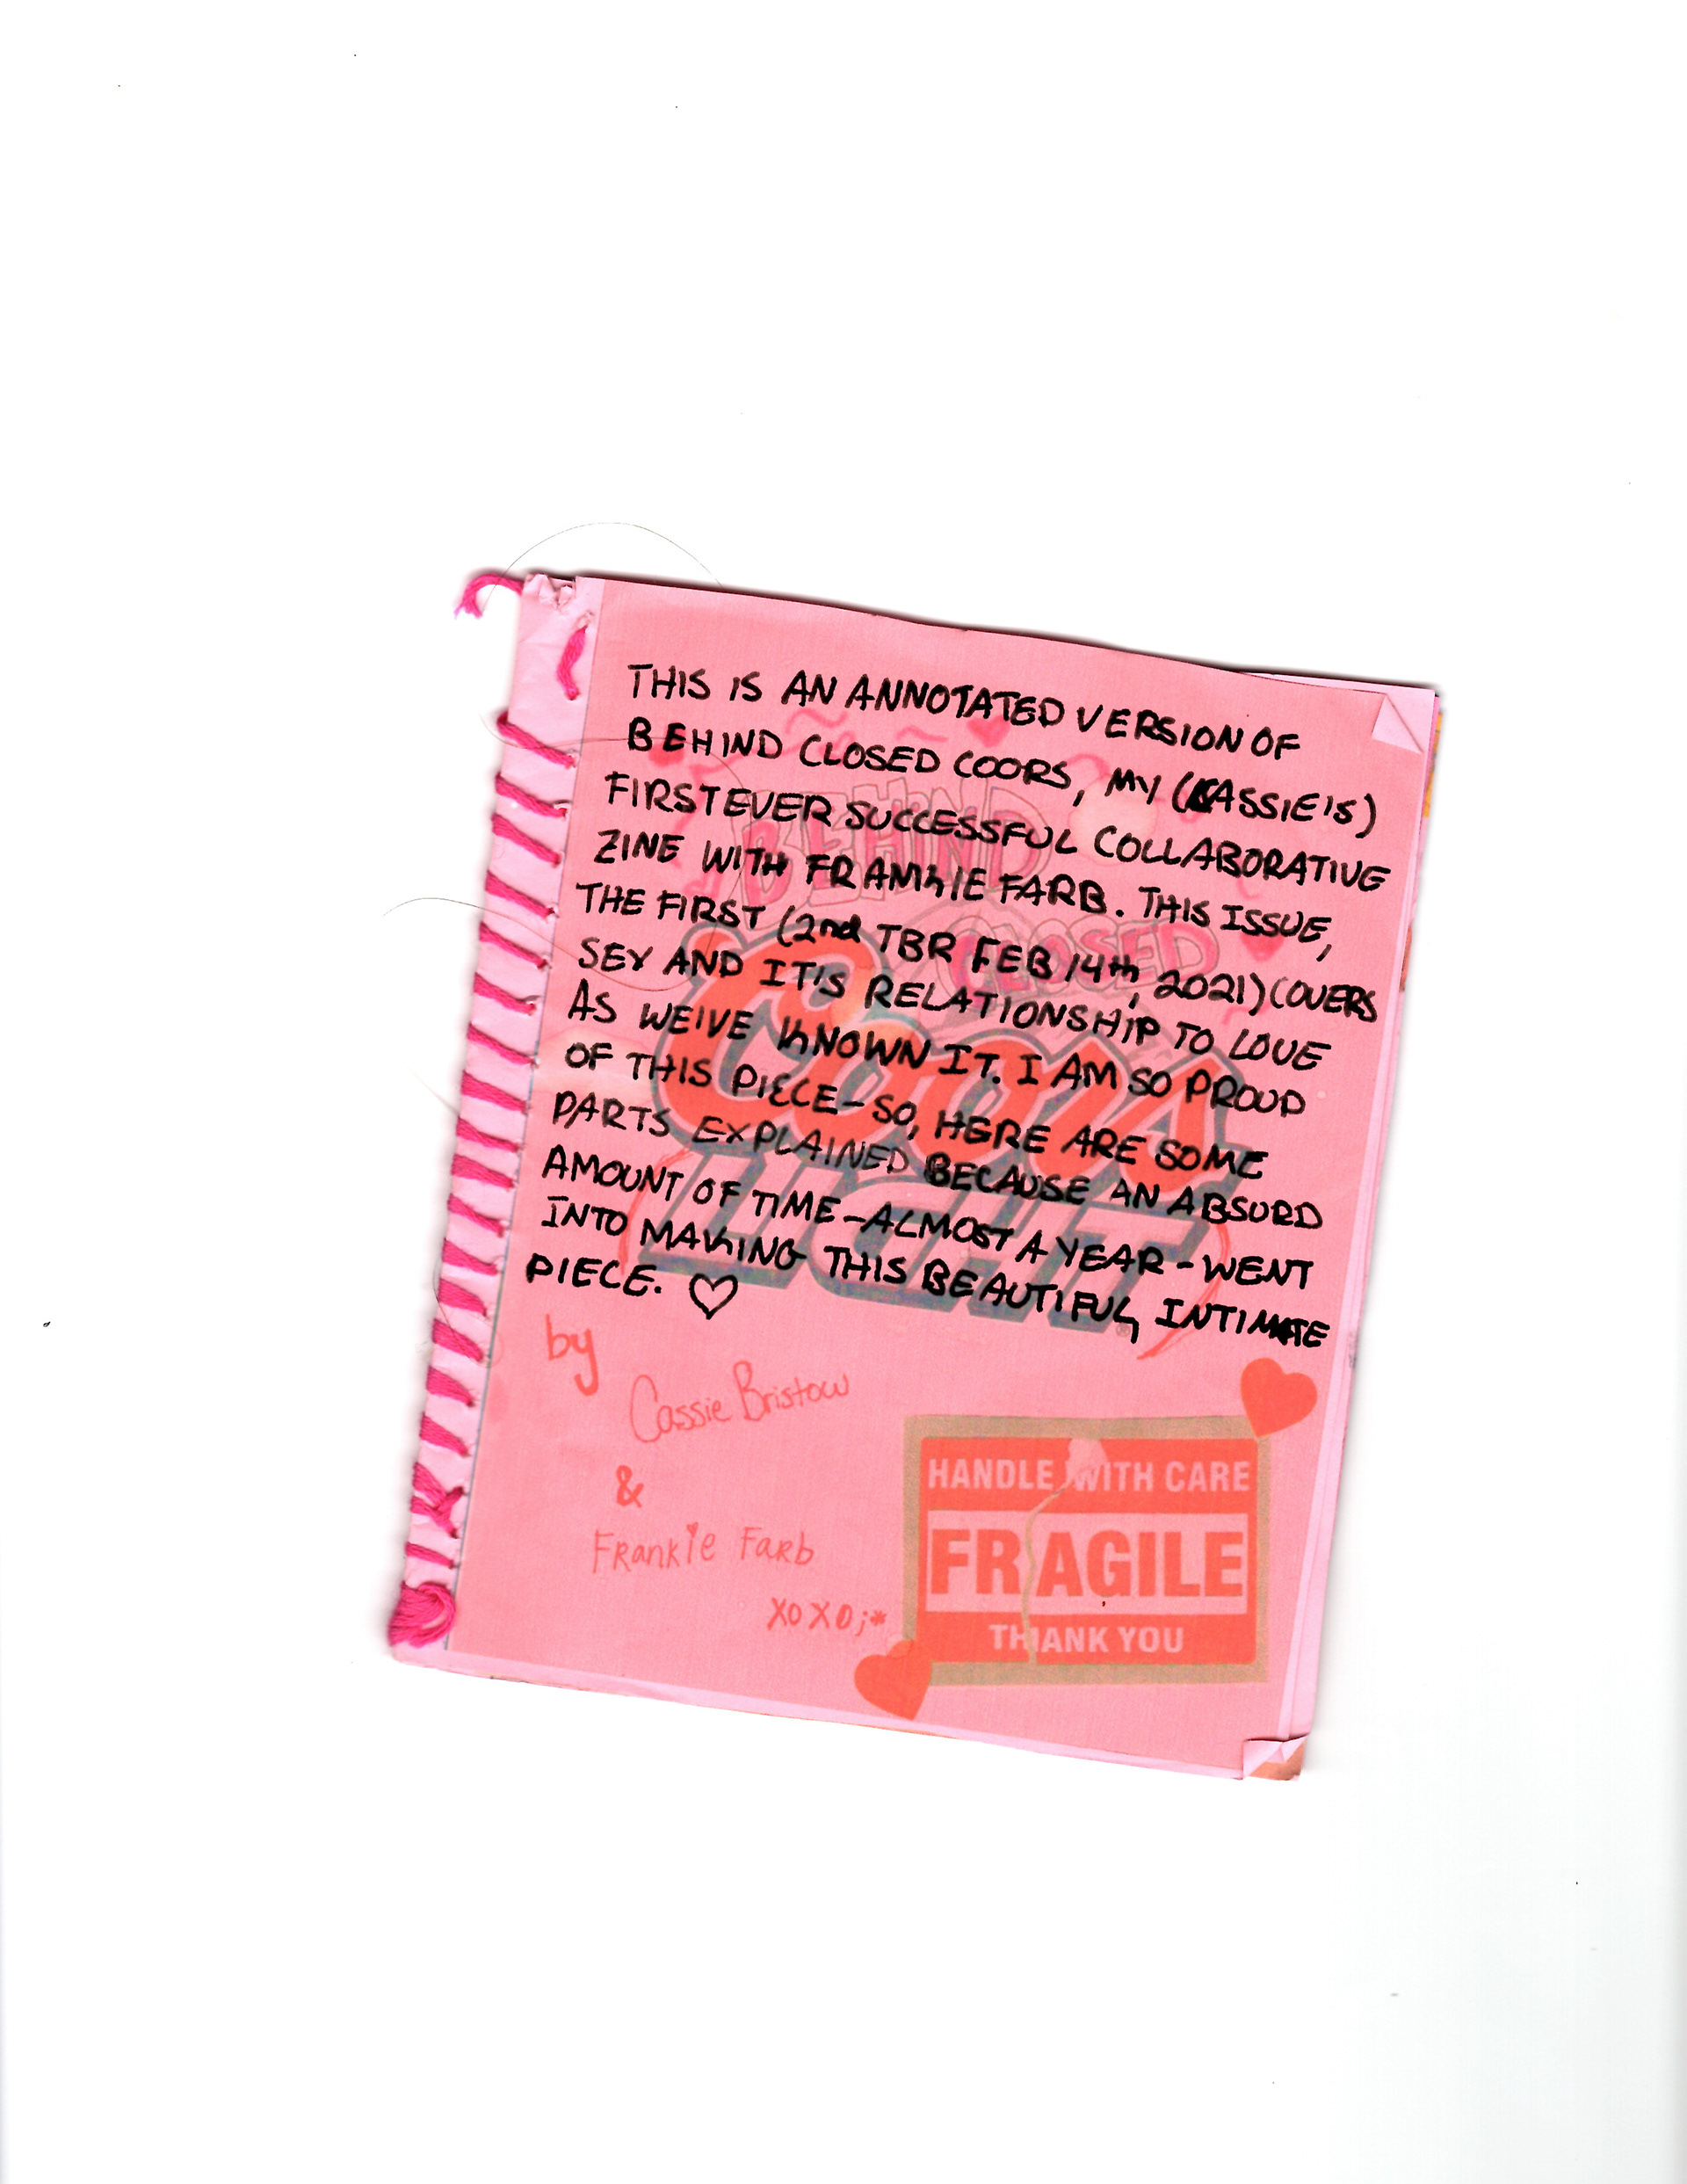 THIS IS AN ANNOTATED VERSION OF
BEHIND CLOSED COORS, MY (CASSIE'S)
FIRST EVER SUCCESSFUL COLLABORATIVE
ZINE WITH FRANKIE FARB. THIS ISSUE,
THE FIRST (2nd TBR FEB 14th, 2021) COVERS
SEX AND IT'S RELATIONSHIP TO LOVE
AS WE'VE KNOWN IT. I AM SO PROUD
OF THIS PIECE - SO, HERE ARE SOME
PARTS EXPLAINED BECAUSE AN ABSURD
AMOUNT OF TIME - ALMOST A YEAR - WENT
INTO MAKING THIS BEAUTIFUL, INTIMATE
PIECE. ♡
BEHIND
CLOSED
Coors
LIGHT
®
by
Cassie Bristow
&
Frankie Farb
XOXO;*
HANDLE WITH CARE
FRAGILE
THANK YOU